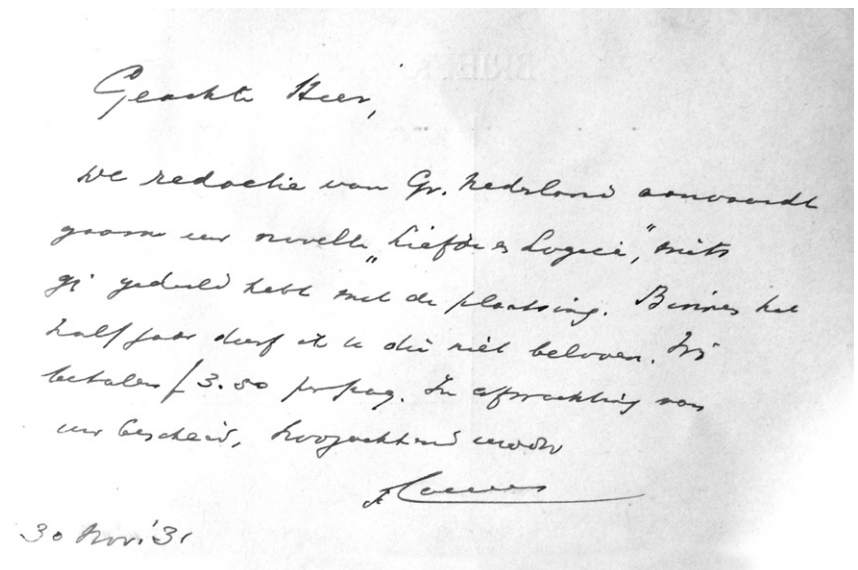 Geachte Heer,
De redactie van Gr. Nederland aanvaardt
gaarne uw novelle „Liefde en Logica”, mits
gij geduld hebt met de plaatsing. Binnen het
half jaar durf ik u die niet beloven. Wij
betalen f 3.50 per pag. In afwachting van
uw bescheid, hoogachtend uwdw
30 Nov. '31